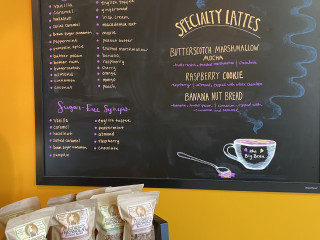 Vanilla
Caramel
hazelnut
Salted caramel
brown sugar cinnamon
Peppermint
pumpkin spice
Butter pecan
butter rum
butterscotch
almond
cinnamon
Coconut
English toffee
gingerbread
Irish cream
macadamia nut
maple
peanut butter
toasted marshmallow
banana
raspberry
cherry
orange
mango
peach
Sugar-Free Syrups
Vanilla
Caramel
hazelnut
Salted caramel
brown sugar cinnamon
pumpkin
English toffee
peppermint
almond
raspberry
chocolate
SPECIALTY LATTES
BUTTERSCOTCH MARSHMALLOW
MOCHA
RASPBERRY COOKIE
BANANA NUT BREAD
the
Big Bean